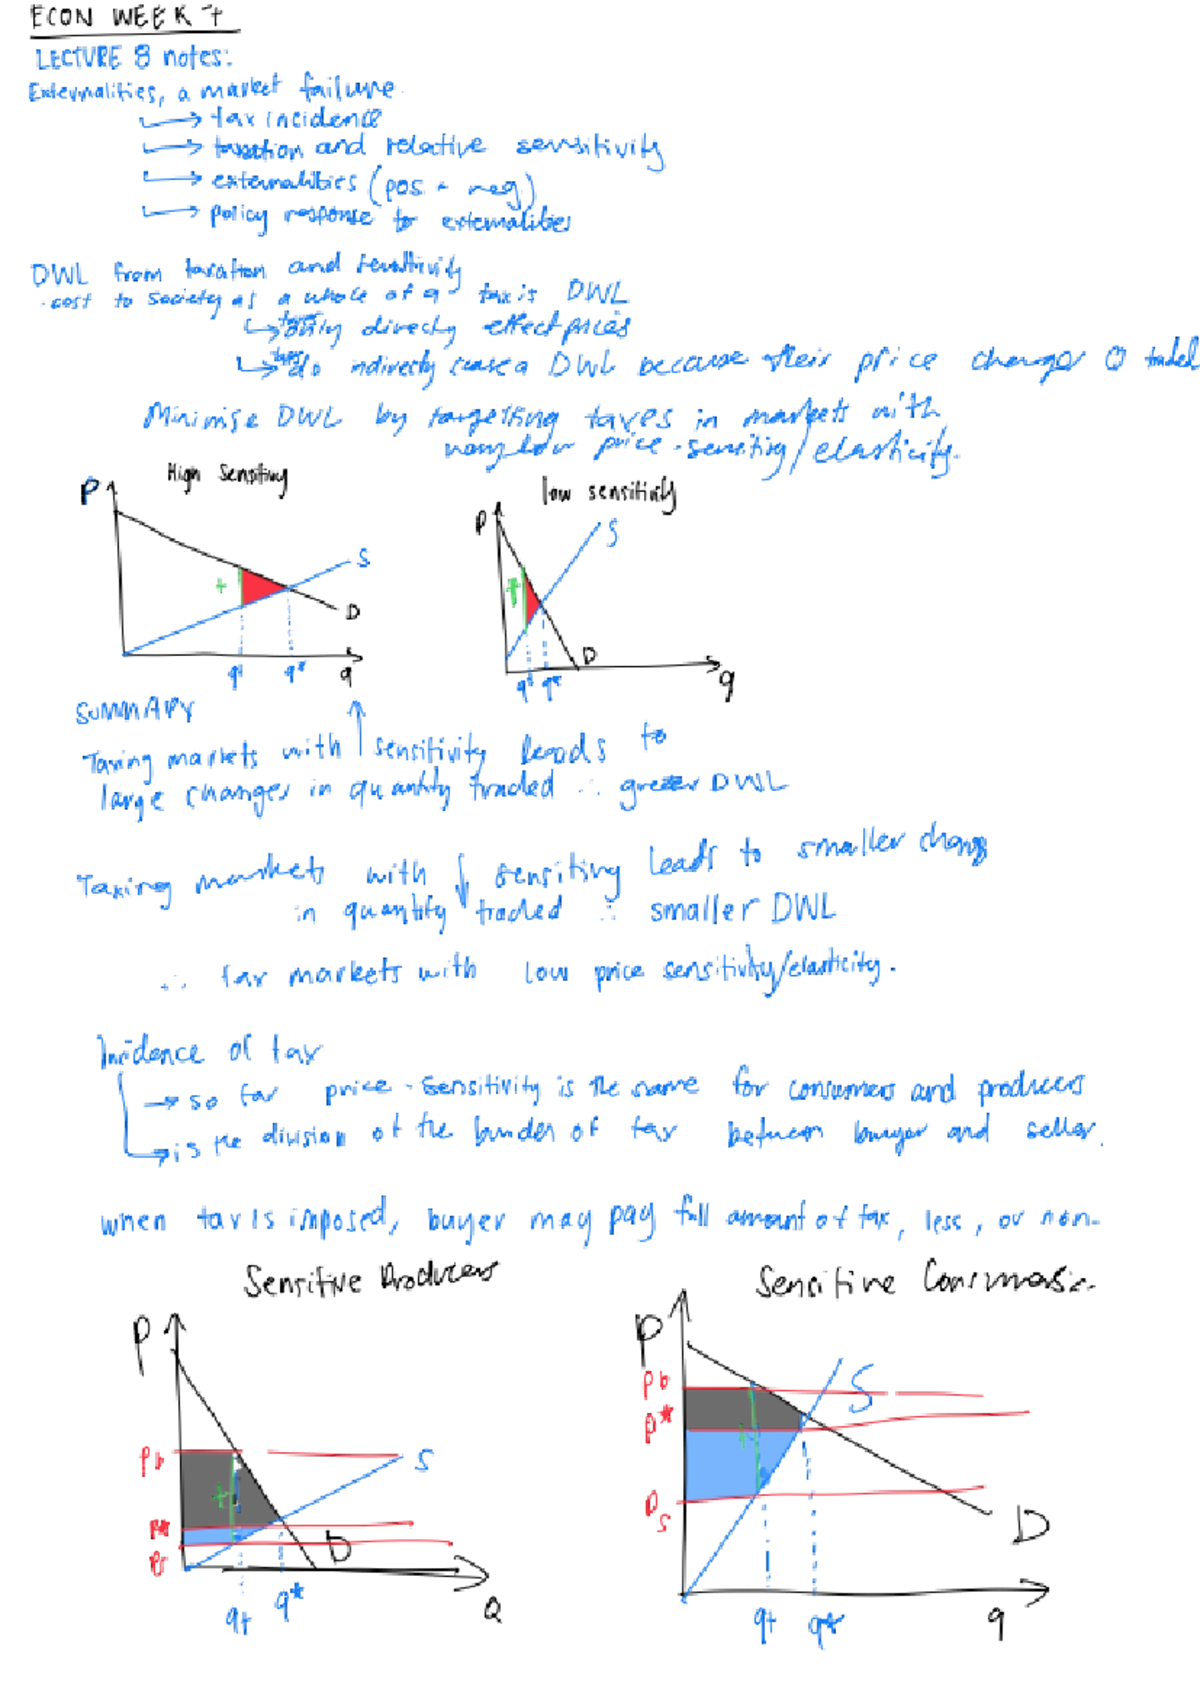 ECON WEEK 7
LECTURE 8 notes:
Externalities, a market failure.
→ tax incidence
→ taxation and relative sensitivity
→ externalities (pos + neg)
→ policy response to externalities
DWL from taxation and sensitivity
· cost to society as a whole of a tax is DWL
→ taxes only directly effect prices
→ taxes do indirectly cause a DWL because their price changes Q traded
Minimise DWL by targetting taxes in markets with
low price-sensitivity/elasticity.
High Sensitivity
low sensitivity
P
S
t
D
qt
q*
q
P
S
t
D
qt
q*
q
SUMMARY
Taxing markets with ↑ sensitivity leads to
large changes in quantity traded ∴ greater DWL
Taxing markets with ↓ sensitivity leads to smaller change
in quantity traded ∴ smaller DWL
∴ tax markets with low price sensitivity/elasticity.
Incidence of tax
→ so far price-sensitivity is the same for consumers and producers
→ is the division of the burden of tax between buyer and seller.
when tax is imposed, buyer may pay full amount of tax, less, or non-
Sensitive Producers
Sensitive Consumers
P
Pb
S
t
P*
Ps
D
qt
q*
Q
P
Pb
S
P*
t
Ps
D
qt
q*
q